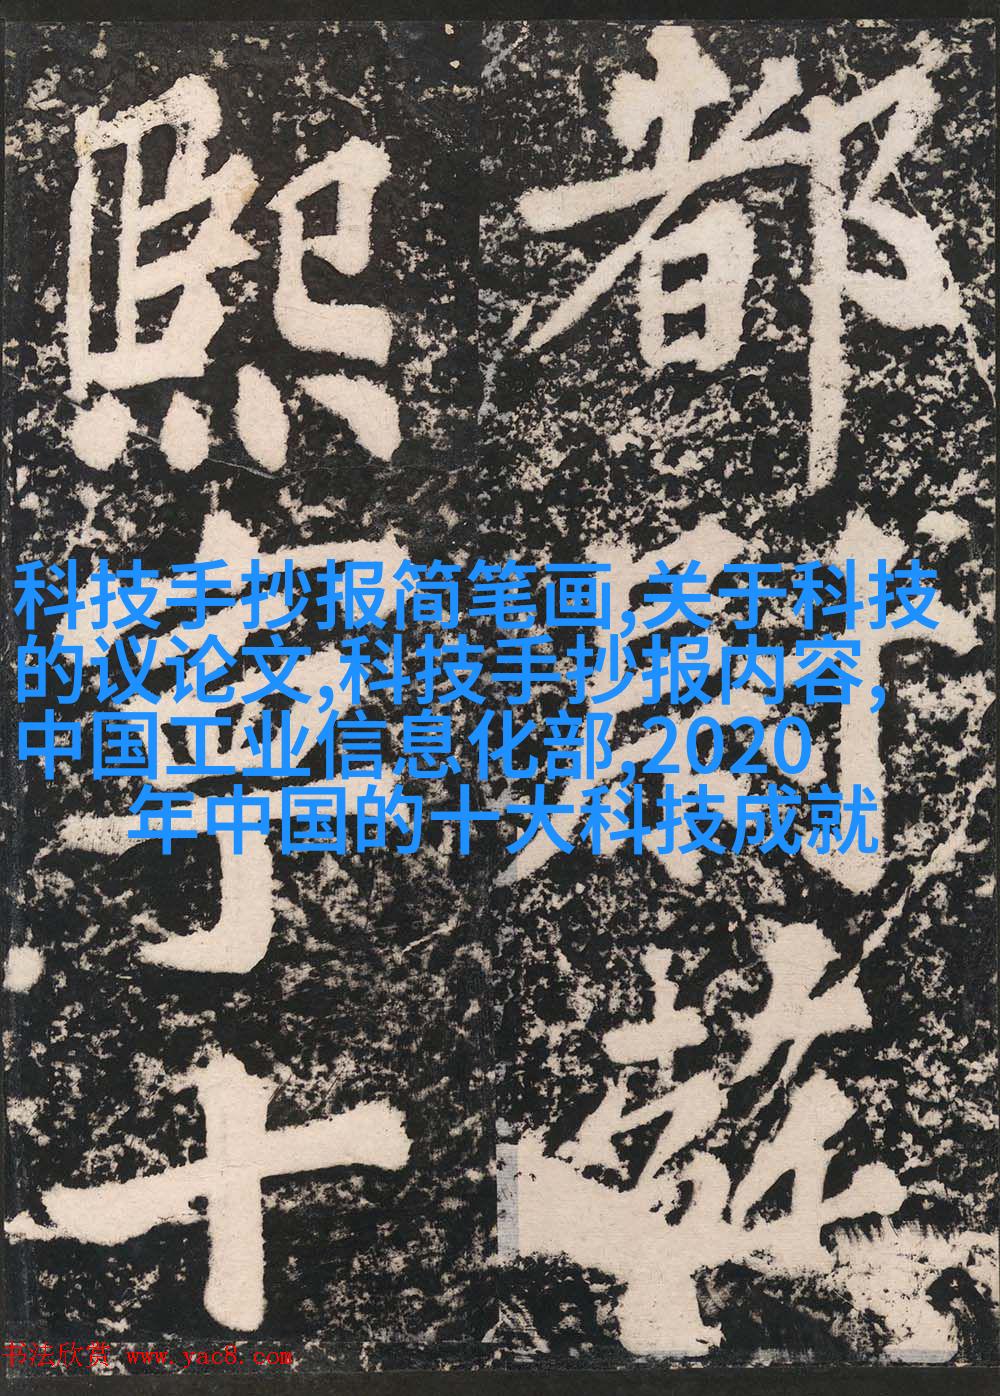 都
熙寧十
科技手抄报简笔画,关于科技
的议论文,科技手抄报内容,
中国工业信息化部,2020
年中国的十大科技成就
书法欣赏 www.yac8.com